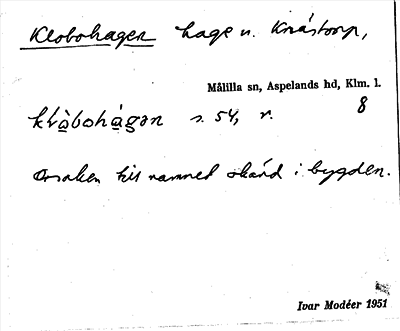 Klobohagen hage u. Knåstorp,
Målilla sn, Aspelands hd, Klm. l.
8
klåbohågən s. 54, r.
Orsaken till namned okänd i bygden.
Ivar Modéer 1951